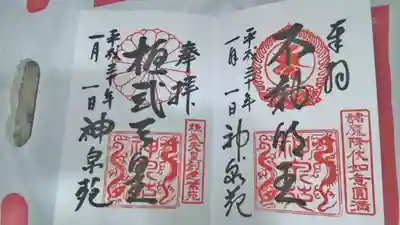 不動明王
平成三十年
一月一日 神泉苑
降伏如意圓満
奉拝
桓武天皇
平成三十年
一月一日 神泉苑